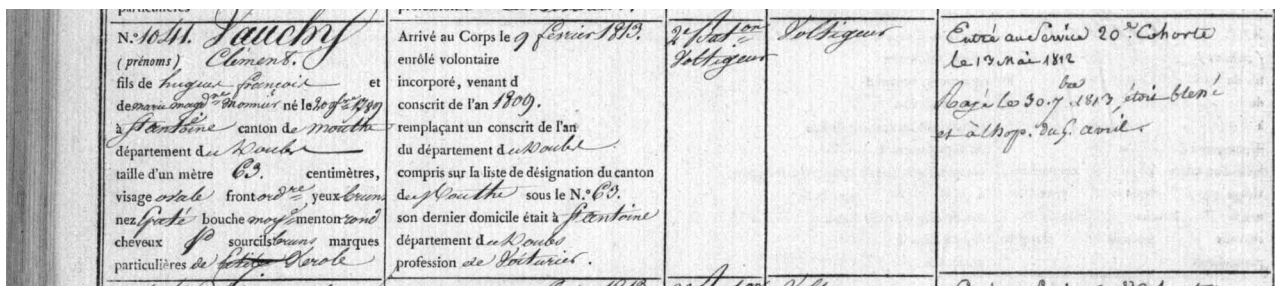 N.º 1041. Vauchy
(prénoms) Clément.
fils de hugues françois et
de marie magd.ne monnier né le 20 9bre 1789
à St antoine canton de mouthe
département du Doubs
taille d'un mètre 63. centimètres,
visage ovale front ord.re yeux bruns
nez Gaté bouche moy.e menton rond
cheveux sourcils bruns marques
particulières de petite verole
Arrivé au Corps le 9 février 1813.
enrôlé volontaire
incorporé, venant d
conscrit de l'an 1809.
remplaçant un conscrit de l'an
du département du Doubs
compris sur la liste de désignation du canton
de Mouthe sous le N.º 63.
son dernier domicile était à St antoine
département du Doubs
profession de Voiturier.
2e Bat.on
Voltigeur
Voltigeur
Entré au Service 20.e Cohorte
le 13 Mai 1812
Rayé le 30. 7bre 1813, étoit blessé
et à l'hop. du 5. avril.